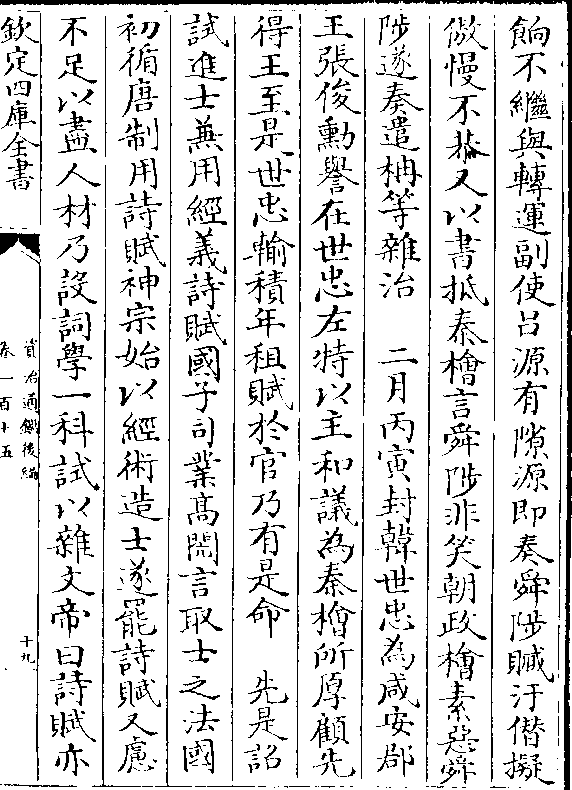 餉不繼與轉運副使吕源有隙源即奏舜陟贓汙僭擬
傲慢不恭又以書抵秦檜言舜陟非笑朝政檜素惡舜
陟遂奏遣柟等雜治　二月丙寅封韓世忠為咸安郡
王張俊勲譽在世忠左特以主和議為秦檜所厚顧先
得王至是世忠輸積年租賦於官乃有是命　先是詔
試進士兼用經義詩賦國子司業髙閌言取士之法國
初循唐制用詩賦神宗始以經術造士遂罷詩賦又慮
不足以盡人材乃設詞學一科試以雜文帝曰詩賦亦
欽定四庫全書
資治通鑑後編
卷一百十五
十九